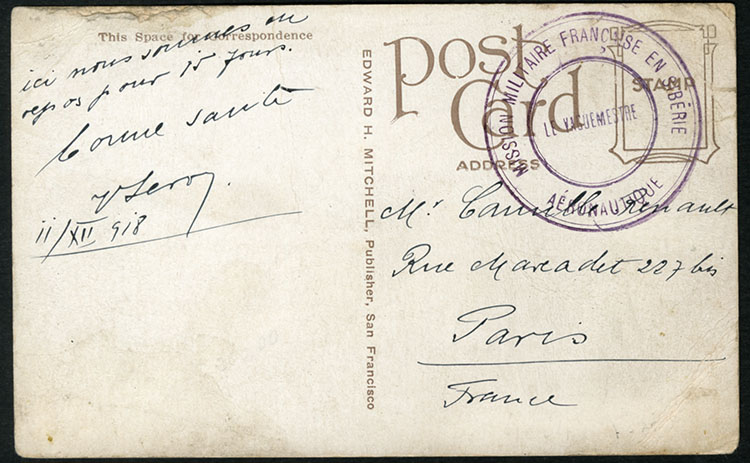 This Space for Correspondence
ici nous sommes en
repos pour 15 jours.
bonne santé
11/XII 918
EDWARD H. MITCHELL, Publisher, San Francisco
Post
Card
ADDRESS
STAMP
MISSION MILITAIRE FRANÇAISE EN SIBÉRIE
LE VAGUEMESTRE
AÉRONAUTIQUE
Mr Camille Renault
Rue Marcadet 227 bis
Paris
France